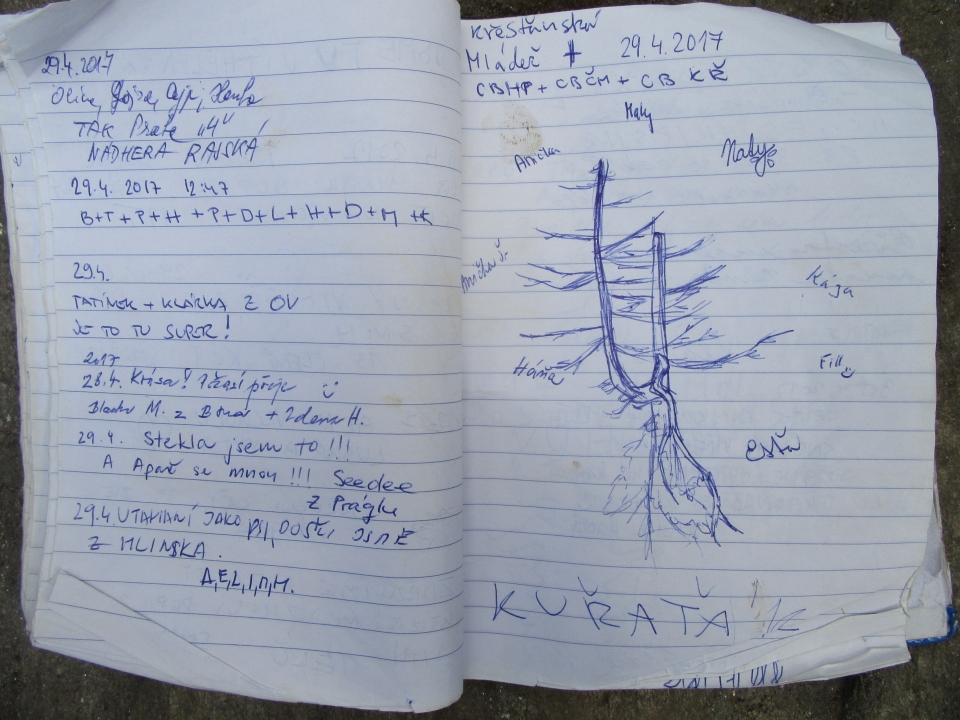 29.4.2017
TAK Prate "4"
NÁDHERA RAJSKÁ
29.4. 2017 12:47
B+T+P+H+P+D+L+H+D+M+K
29.4.
TATÍNEK + KLÁRKA Z OV
JE TO TU SUPER!
2017
28.4. Krása! Počasí přeje
M. z Brna + Zdena H.
29.4. Stekla jsem to!!!
A Apart se mnou!!! Seedee
z Práglu
29.4 UTAHANÍ JAKO PSI, DOŠLI JSME
Z HLINSKA.
A,E,L,I,M,M.
Křesťanská
Mládež + 29.4.2017
CBHP + CBČM + CB KŘ
Maky
Anička
Naty
Anička Šr.
Kája
Háňa
Fill
Esťa
KUŘAŤA